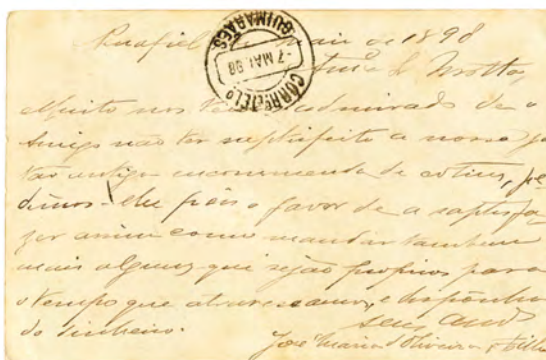 Penafiel de Maio de 1898
Am.º Sr. Motta,
CORRº E TELº
GUIMARÃES
7 MAI. 98
Muito nos tem admirado de o
Amigo não ter satisfeito a nossa já
tão antiga encommenda de cotins, pe
dimos-lhe pois o favor de a satisfa
zer assim como mandar tambem
mais alguns que sejão proprios para
o tempo que atravessamos, e disponha
do dinheiro.
seus
José Maria d'Oliveira & Filho